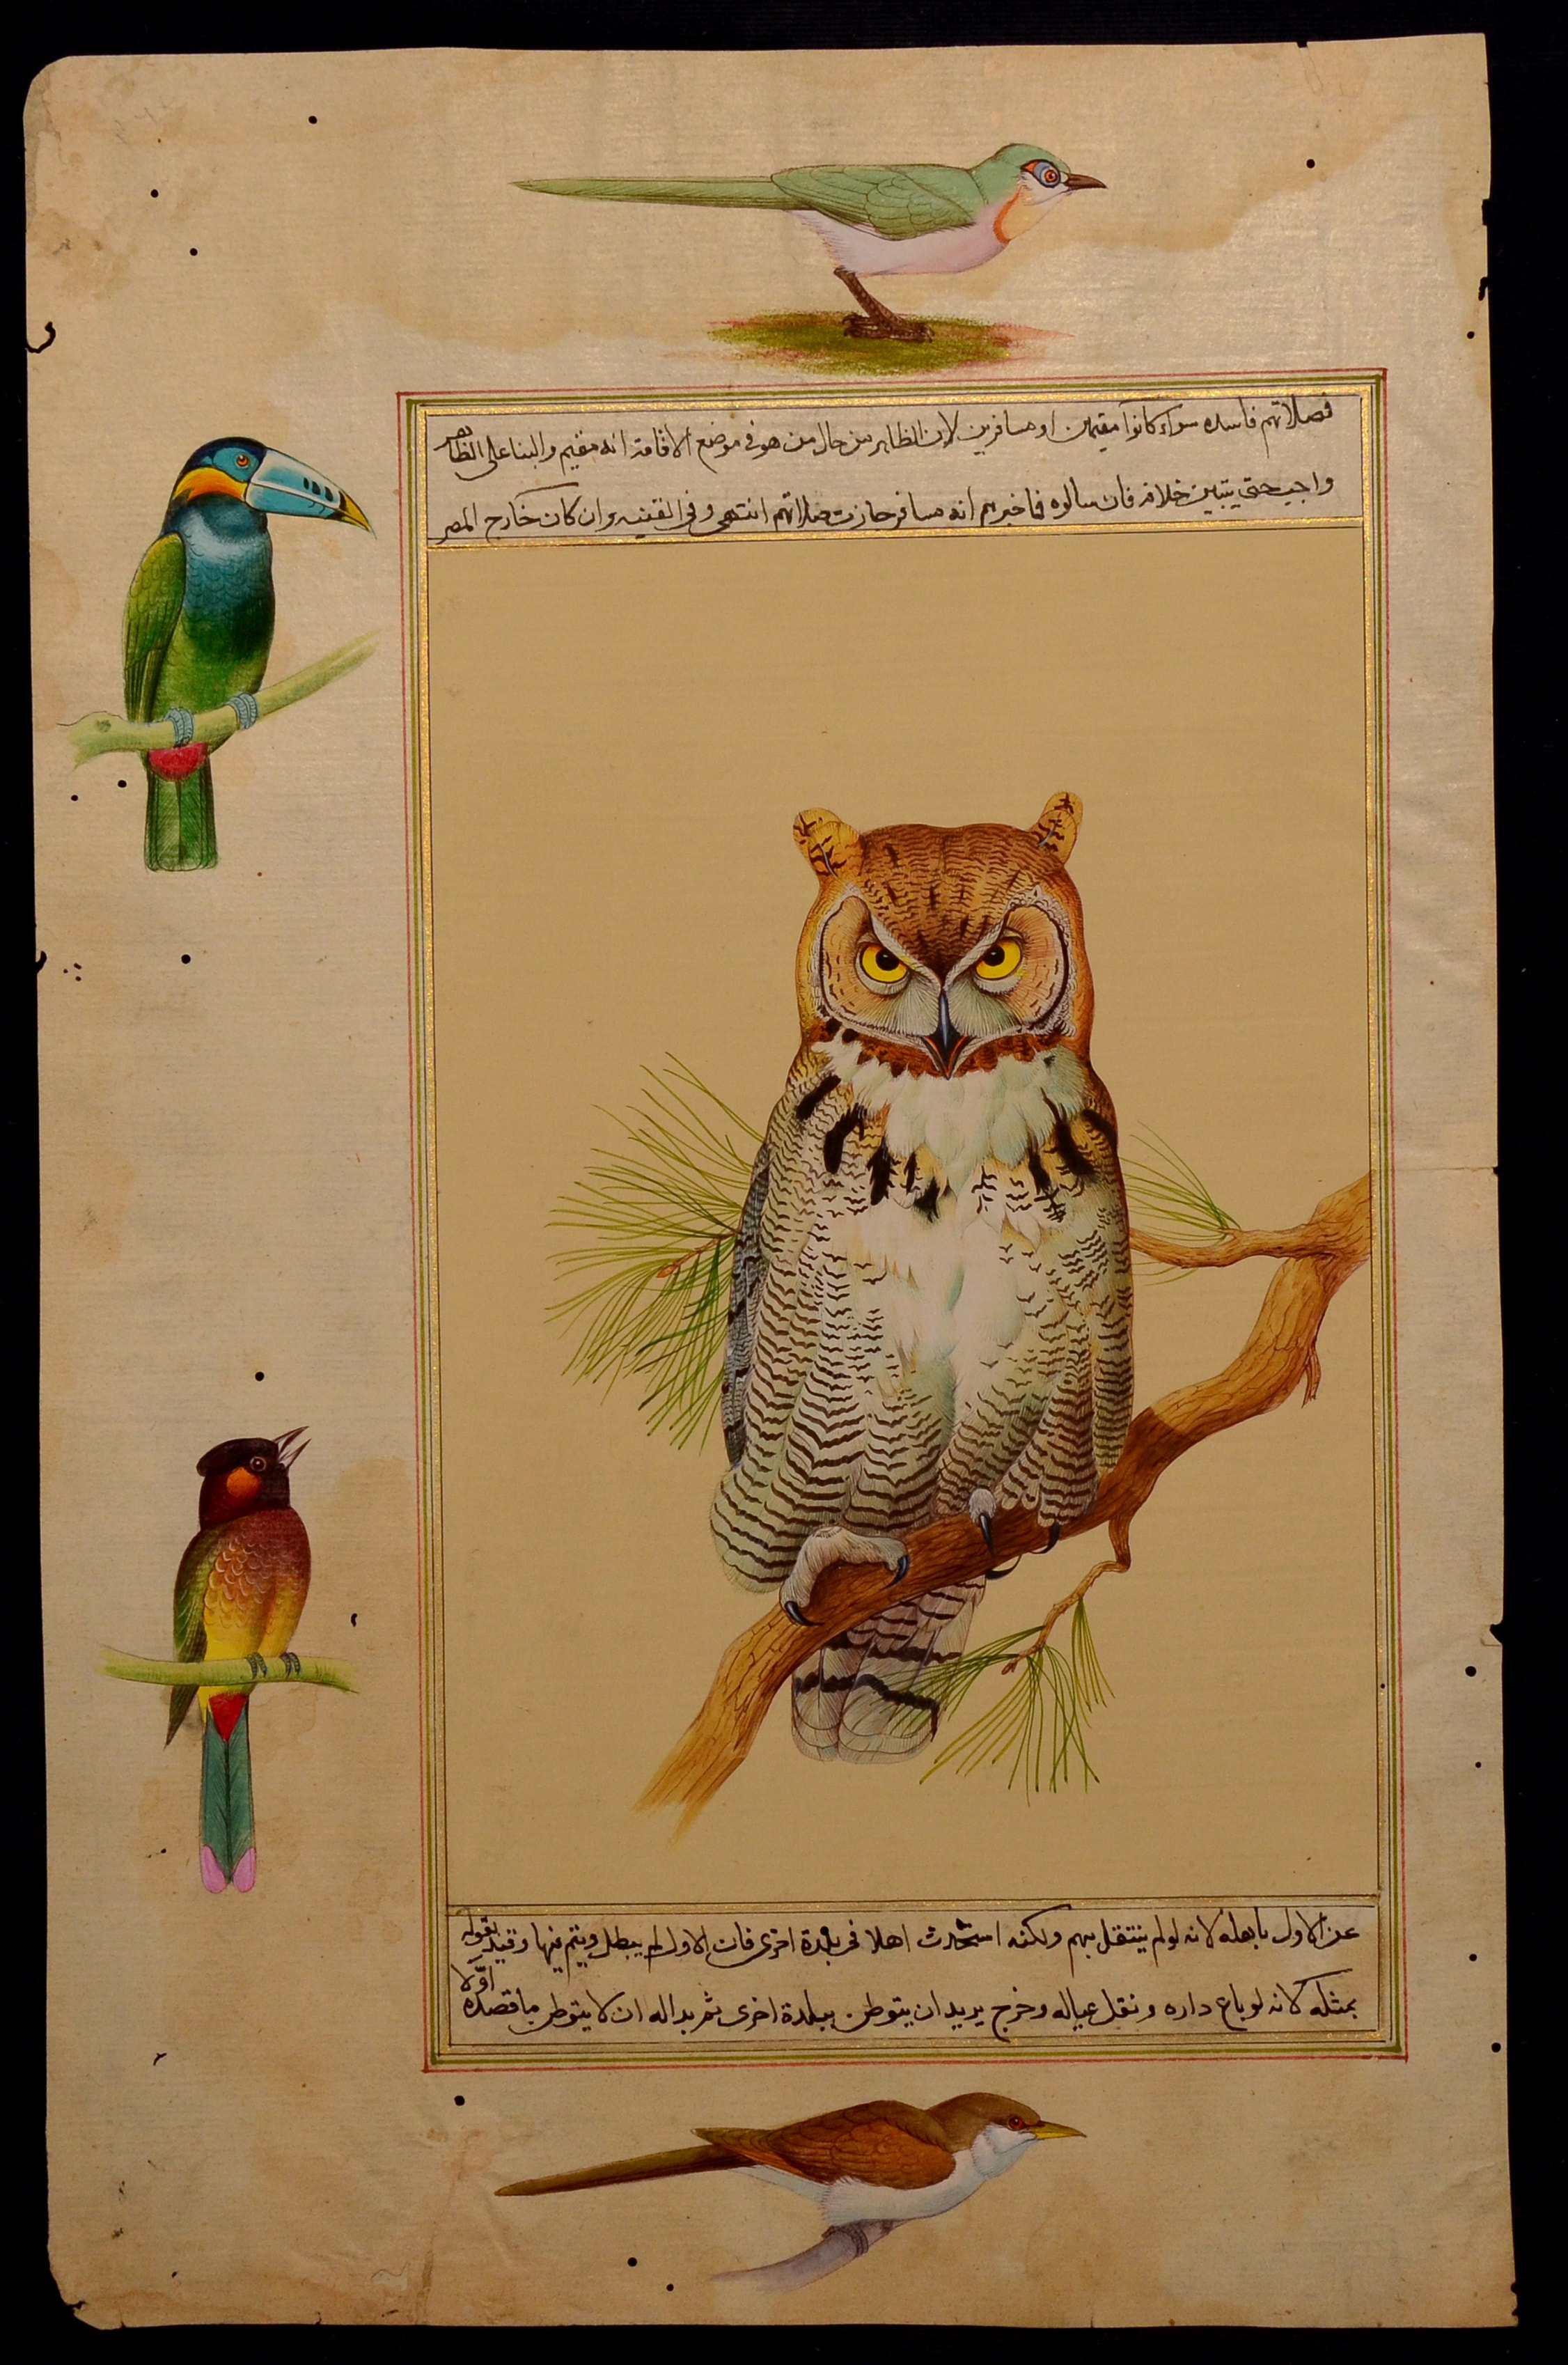 فصلاتهم فاسده سواء كانوا مقيمين او مسافرين لان الظاهر من حال من هو في موضع الاقامة انه مقيم والبنا على الظاهر
واجب حتى يتبين خلافه فان سالوه فاخبرهم انه مسافر جازت صلاتهم انتهى وفي القنيه وان كان خارج المصر
عن الاول باهله لانه لو لم ينتقل بهم ولكنه استحدث اهلا في بلدة اخرى فان الاول لم يبطل ويتم فيها وقيد بقوله
بمثله لانه لو باع داره ونقل عياله وخرج يريد ان يتوطن ببلدة اخرى ثم بدا له ان لا يتوطن ما قصده اوّلا